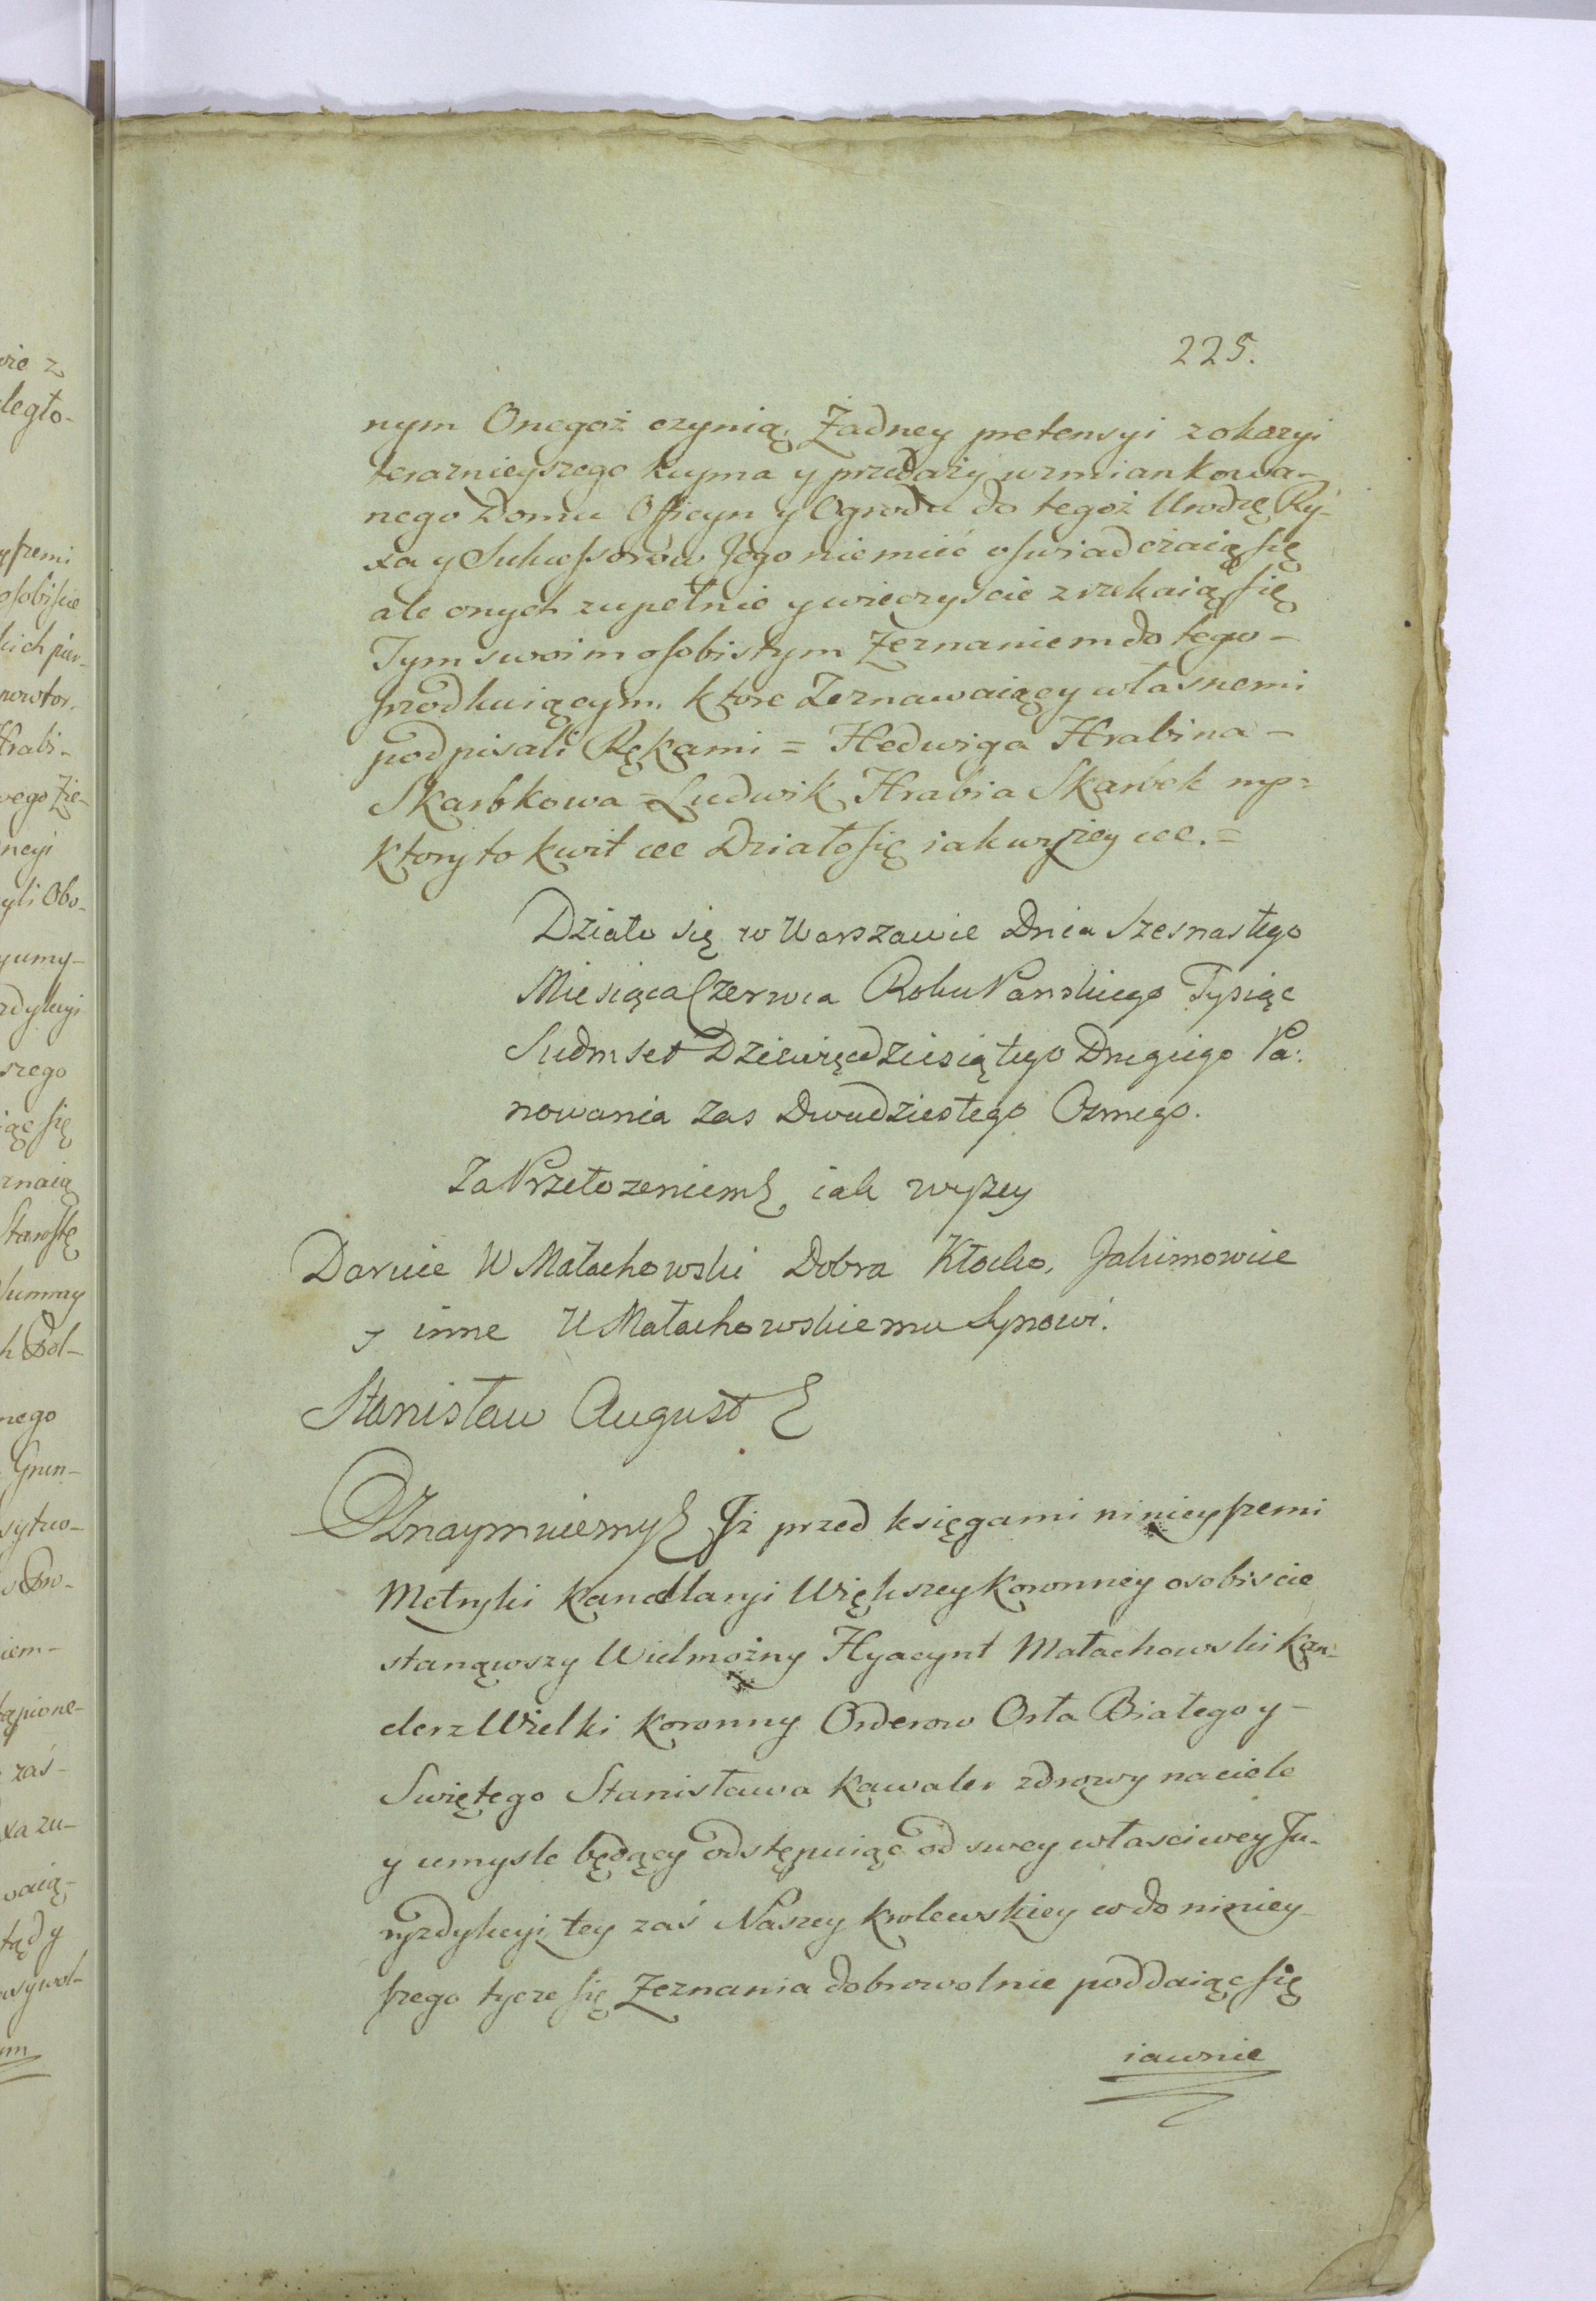 225.
nym Onegoż czynią, Żadney pretensyi z okazyi
teraznieyszego kupna y przedaży wzmiankowa-
nego Domu Officyn y Ogrodu do tegoż Urodzę Ry-
xa y Sukcessorów Jego niemieć oswiadczaią się
ale onych zupełnie y wieczyscie zrzekaią się
Tym swoim osobistym Zeznaniem do tego-
ktore Zeznawaiący własnemi
podpisali Rękami = Hedwiga Hrabina -
Skarbkowa = Ludwik Hrabia Skarbek mp =
ktory to kwit &c Działo się iak wyżey &c. =
Działo się w Warszawie Dnia Szesnastego
Miesiąca Czerwca Roku Panskiego Tysiąc
Siedmset Dziewięcdziesiątego Drugiego Pa:
nowania zas Dwudziestego Osmego.
Za Przełozeniem iak wyszey
Daruie W Małachowski Dobra Jakimowice
y inne U Małachowskiemu Synowi.
Stanisław August
Oznaymuiemy Jż przed księgami ninieyszemi
Metryki Kancellaryi Większey Koronney osobiscie
stanąwszy Wielmożny Hyacynt Małachowski Kan-
clerz Wielki Koronny Orderow Orła Białego y -
Swiętego Stanisława Kawaler zdrowy na ciele
y umysle będący odstępuiąc od swey własciwey Ju-
ryzdykcyi, tey zaś Naszey Krolewskiey co do niniey-
szego tycze się Zeznania dobrowolnie poddaiąc się
iawnie